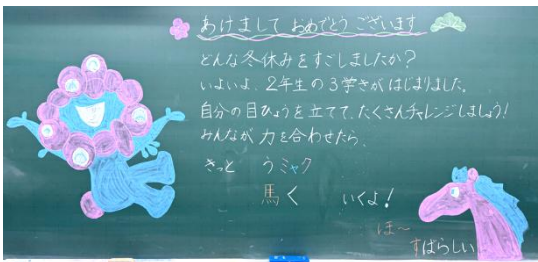 あけまして おめでとう ございます
どんな冬休みをすごしましたか?
いよいよ、2年生の3学きがはじまりました。
自分の目ひょうを立てて、たくさんチャレンジしましょう!
みんなが 力を合わせたら、
きっと うミャク
馬く いくよ!
ほ〜
すばらしい